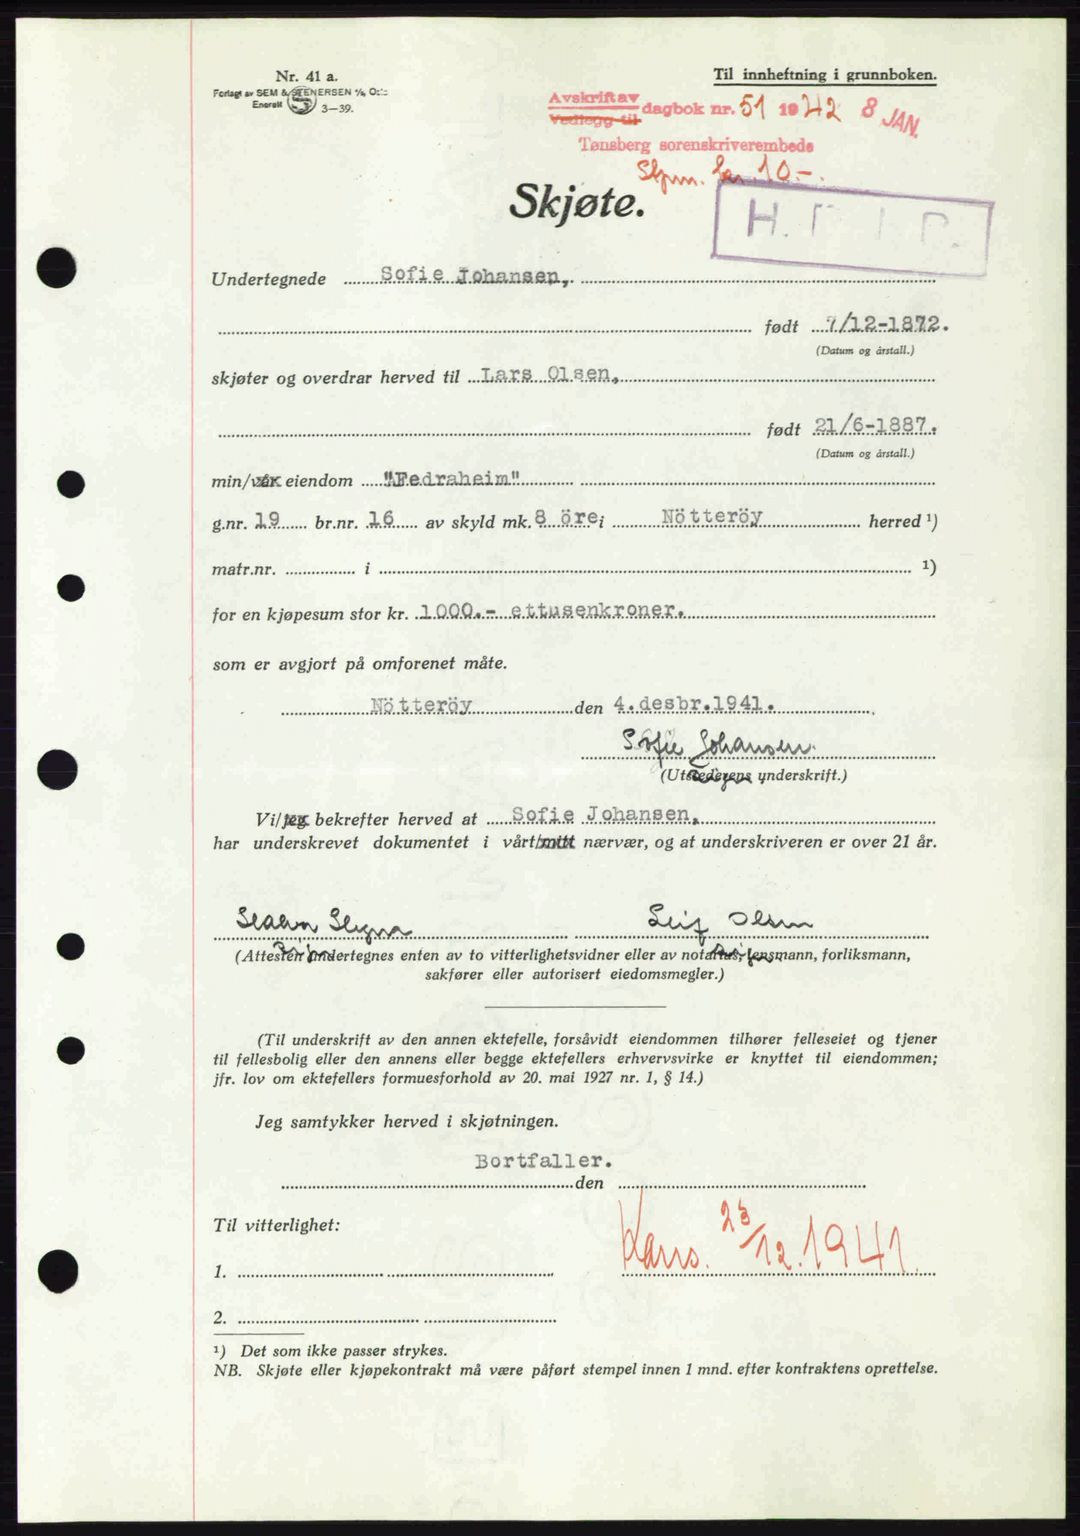 Nr. 41 a.
Forlagt av SEM & STENERSEN A/S, Oslo
Enerett 3–39.
Til innheftning i grunnboken.
Avskrift av
Vedlegg til dagbok nr. 51 1942 8 JAN.
Tønsberg sorenskriverembede
10-.
Skjøte.
H.
Undertegnede Sofie Johansen,
født 7/12-1872.
(Datum og årstall.)
skjøter og overdrar herved til Lars Olsen,
født 21/6-1887.
(Datum og årstall.)
min/vår eiendom "Fedraheim"
g.nr. 19 br.nr. 16 av skyld mk. 8 öre i Nötteröy herred ¹)
matr.nr. i ¹)
for en kjøpesum stor kr. 1000.- ettusenkroner.
som er avgjort på omforenet måte.
Nötteröy den 4.desbr.1941.
Sofie Johansen.
(Utstederens underskrift.)
Vi/jeg bekrefter herved at Sofie Johansen,
har underskrevet dokumentet i vårt/mitt nærvær, og at underskriveren er over 21 år.
Leif Olsen
(Attesten undertegnes enten av to vitterlighetsvidner eller av notarius, lensmann, forliksmann,
sakfører eller autorisert eiedomsmegler.)
(Til underskrift av den annen ektefelle, forsåvidt eiendommen tilhører felleseiet og tjener
til fellesbolig eller den annens eller begge ektefellers erhvervsvirke er knyttet til eiendommen;
jfr. lov om ektefellers formuesforhold av 20. mai 1927 nr. 1, § 14.)
Jeg samtykker herved i skjøtningen.
Bortfaller.
den
Til vitterlighet:
Kons. 23/12.1941.
1.
2.
¹) Det som ikke passer strykes.
NB. Skjøte eller kjøpekontrakt må være påført stempel innen 1 mnd. efter kontraktens oprettelse.